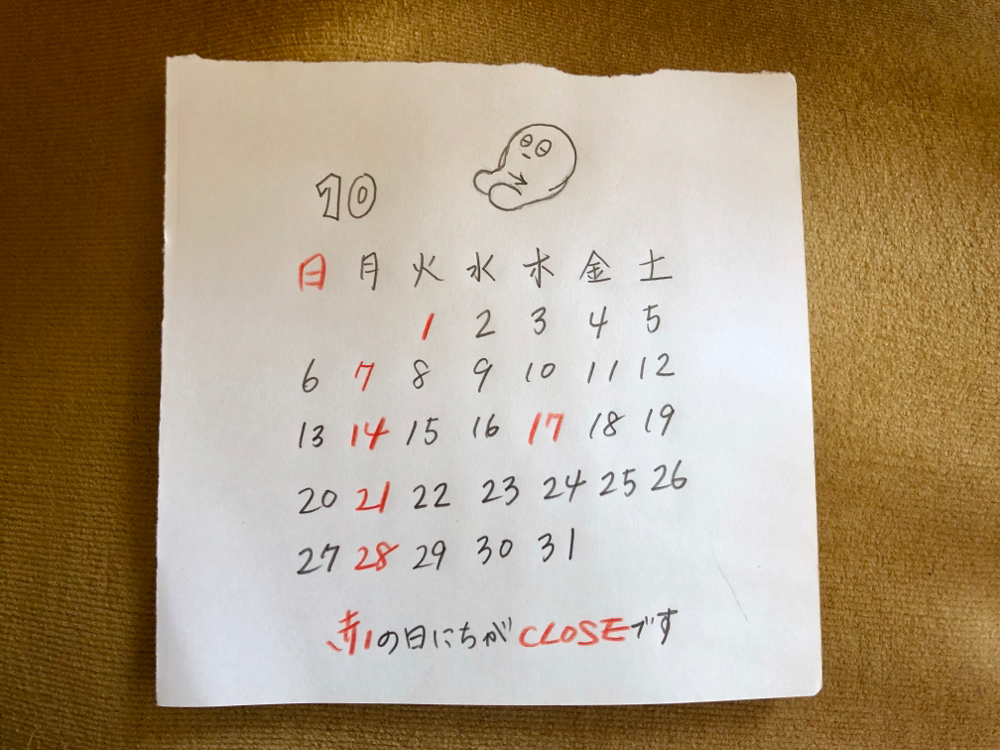 10
日 月 火 水 木 金 土
1 2 3 4 5
6 7 8 9 10 11 12
13 14 15 16 17 18 19
20 21 22 23 24 25 26
27 28 29 30 31
赤の日にちがCLOSEです